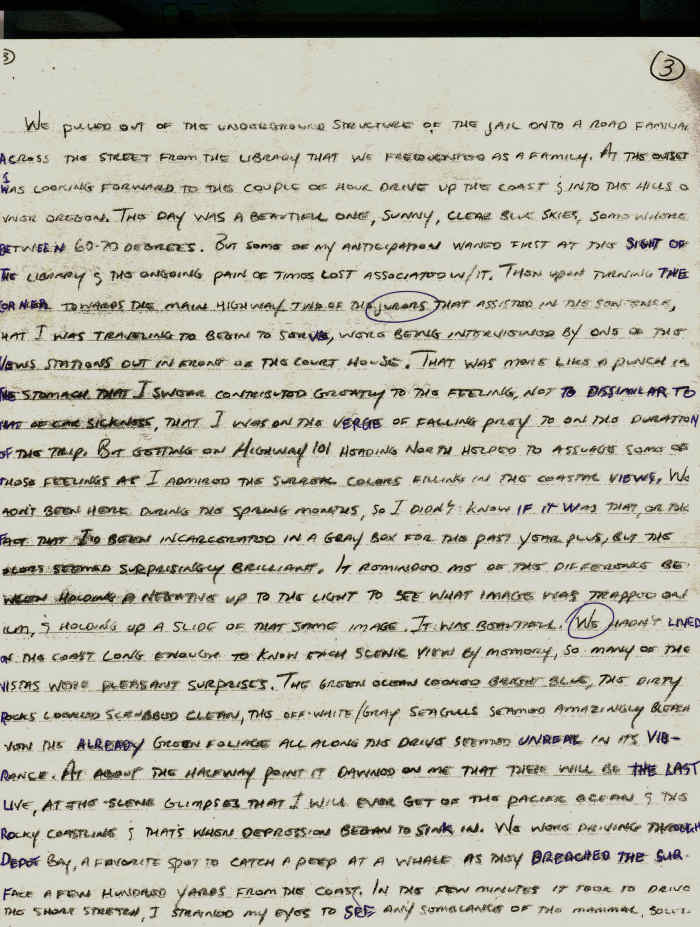 3)
3
WE PULLED OUT OF THE UNDERGROUND STRUCTURE OF THE JAIL ONTO A ROAD FAMILIAR
ACROSS THE STREET FROM THE LIBRARY THAT WE FREQUENTED AS A FAMILY. AT THE OUTSET
I WAS LOOKING FORWARD TO THE COUPLE OF HOUR DRIVE UP THE COAST & INTO THE HILLS O
OREGON. THE DAY WAS A BEAUTIFUL ONE, SUNNY, CLEAR BLUE SKIES, SOMEWHERE
BETWEEN 60-70 DEGREES. BUT SOME OF MY ANTICIPATION WANED FIRST AT THE SIGHT OF
THE LIBRARY & THE ONGOING PAIN OF TIMES LOST ASSOCIATED W/IT. THEN UPON TURNING THE
CORNER TOWARDS THE MAIN HIGHWAY TWO OF THE JURORS THAT ASSISTED IN THE SENTENCE,
HAT I WAS TRAVELING TO BEGIN TO SERVE, WERE BEING INTERVIEWED BY ONE OF THE
NEWS STATIONS OUT IN FRONT OF THE COURT HOUSE. THAT WAS MORE LIKE A PUNCH IN
THE STOMACH THAT I SWEAR CONTRIBUTED GREATLY TO THE FEELING, NOT TO DISSIMILAR TO
THAT OF CAR SICKNESS, THAT I WAS ON THE VERGE OF FALLING PREY TO ON THE DURATION
OF THE TRIP. BUT GETTING ON HIGHWAY 101 HEADING NORTH HELPED TO ASSUAGE SOME OF
THOSE FEELINGS AS I ADMIRED THE SURREAL COLORS FILLING IN THE COASTAL VIEWS. WE
ADN'T BEEN HERE DURING THE SPRING MONTHS, SO I DIDN'T KNOW IF IT WAS THAT, OR THE
FACT THAT I'D BEEN INCARCERATED IN A GRAY BOX FOR THE PAST YEAR PLUS, BUT THE
COLORS SEEMED SURPRISINGLY BRILLIANT. IT REMINDED ME OF THE DIFFERENCE BE-
TWEEN HOLDING A NEGATIVE UP TO THE LIGHT TO SEE WHAT IMAGE WAS TRAPPED ON
ILM, & HOLDING UP A SLIDE OF THAT SAME IMAGE. IT WAS BEAUTIFUL. WE HADN'T LIVED
ON THE COAST LONG ENOUGH TO KNOW EACH SCENIC VIEW BY MEMORY, SO MANY OF THE
VISTAS WERE PLEASANT SURPRISES. THE GREEN OCEAN LOOKED BRIGHT BLUE, THE DIRTY
ROCKS LOOKED SCRUBBED CLEAN, THE OFF-WHITE/GRAY SEAGULLS SEEMED AMAZINGLY BLEACH
VEN THE ALREADY GREEN FOLIAGE ALL ALONG THE DRIVE SEEMED UNREAL IN ITS VIB-
RANCE. AT ABOUT THE HALFWAY POINT IT DAWNED ON ME THAT THESE WILL BE THE LAST
LIVE, AT-THE-SCENE GLIMPSES THAT I WILL EVER GET OF THE PACIFIC OCEAN & THE
ROCKY COASTLINE & THAT'S WHEN DEPRESSION BEGAN TO SINK IN. WE WERE DRIVING THROUGH
DEPOE BAY, A FAVORITE SPOT TO CATCH A PEEP AT A WHALE AS THEY BREACHED THE SUR-
FACE A FEW HUNDRED YARDS FROM THE COAST. IN THE FEW MINUTES IT TOOK TO DRIVE
THE SHORT STRETCH, I STRAINED MY EYES TO SEE ANY SEMBLANCE OF THE MAMMAL,